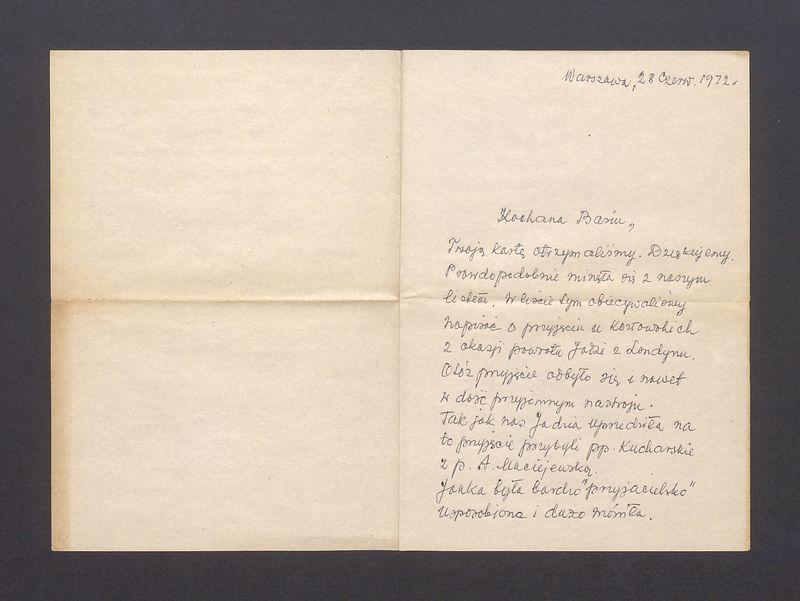 Warszawa, 28 Czerw. 1972.
Kochana Basiu,
Twoją kartę otrzymaliśmy. Dziękujemy.
Prawdopodobnie minęła się z naszym
listem. W liście tym obiecywaliśmy
napisać o przyjęciu u Kozłowskich
z okazji powrotu Jadzi z Londynu.
Otóż przyjęcie odbyło się i nawet
w dość przyjemnym nastroju.
Tak jak nas Jadzia uprzedziła na
to przyjęcie przybyli pp. Kucharskie
z p. A. Maciejewską.
Janka była bardzo "przyjacielsko"
usposobiona i dużo mówiła.